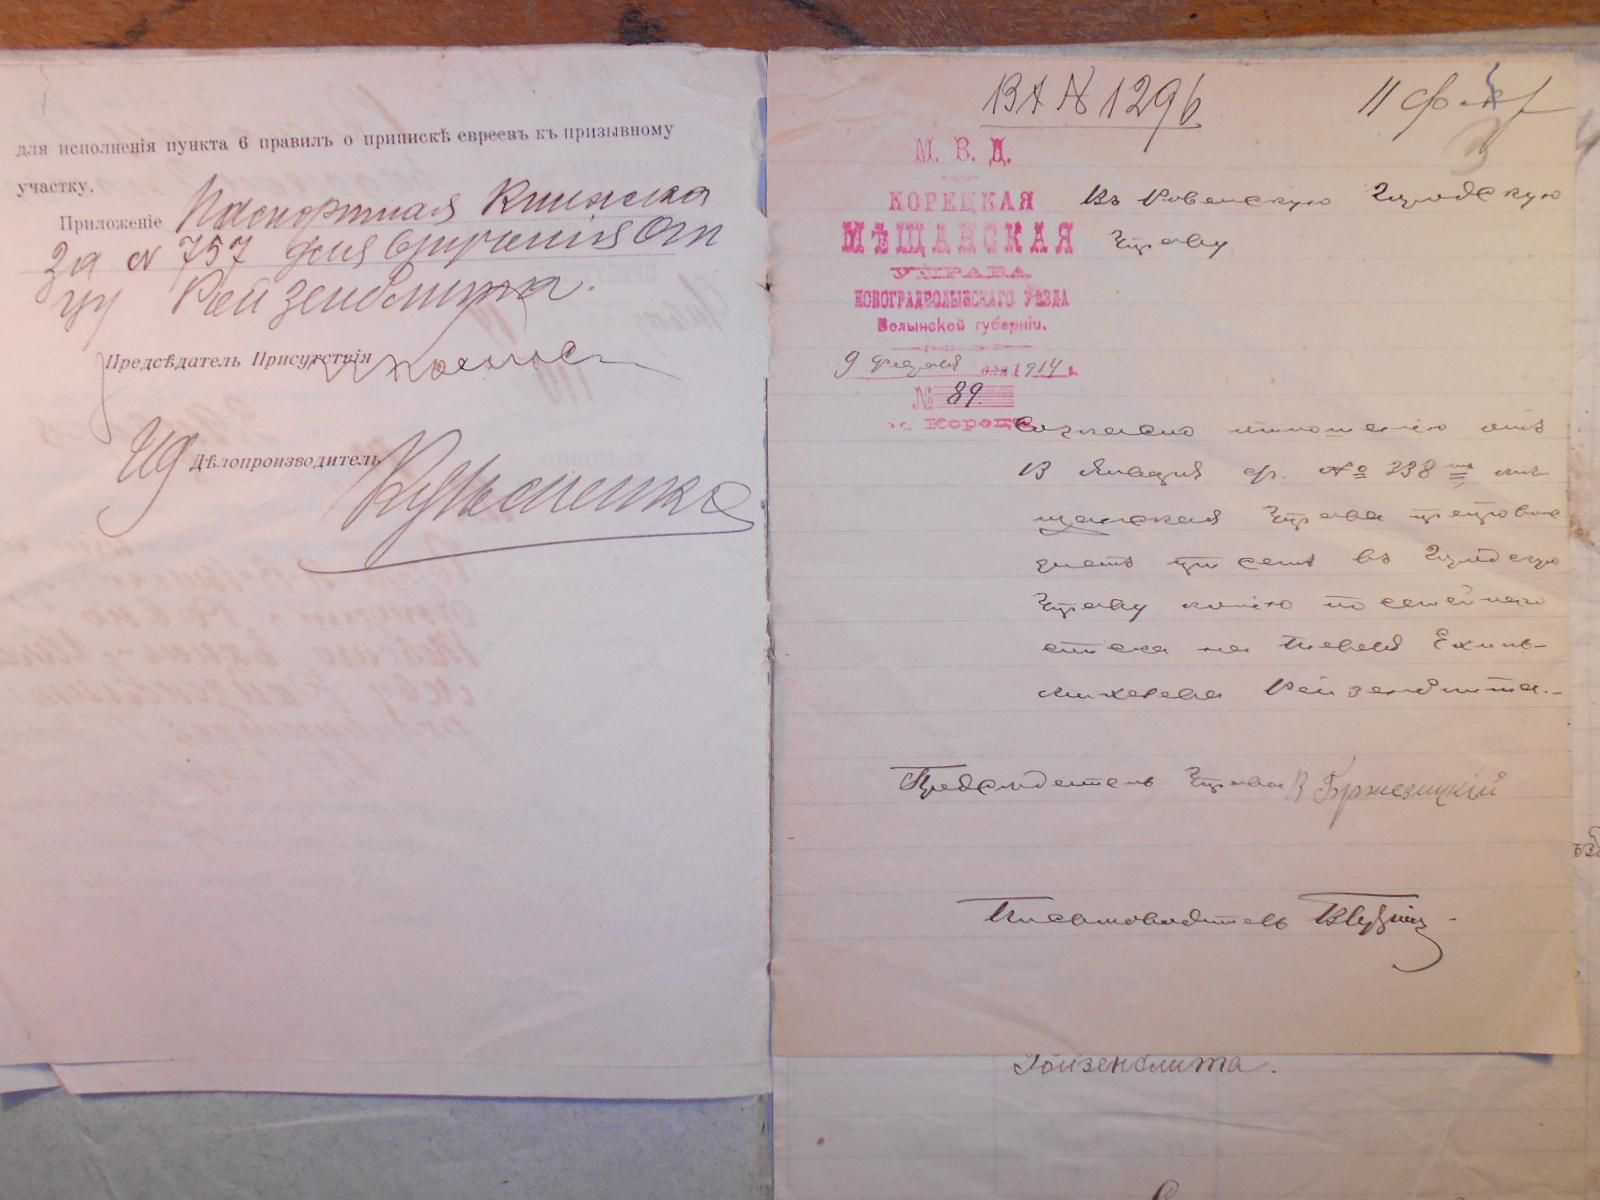 для исполненія пункта 6 правилъ о припискѣ евреевъ къ призывному
участку.
Приложеніе Паспортная Книжка
за № 757 для врученія От
цу Рейзенблита.
Предсѣдатель Присутствія
Ид Дѣлопроизводитель
ВХ № 1296
11 фев
М. В. Д.
КОРЕЦКАЯ
МѢЩАНСКАЯ
УПРАВА
НОВОГРАДВОЛЫНСКАГО УѢЗДА
Волынской губерніи.
9 Февраля дня 1914 г.
№ 89.
м. Корецъ
Въ Ровенскую Городскую
Управу
Согласно отношенію отъ
13 Января с.г. № 238 мѣ
щанская Управа препровож
даетъ при семъ въ Городскую
Управу копію посемейнаго
списка на Ехиль-
Михелева Рейзенблита.
Предсѣдатель Управы В Бржезицкій
Письмоводитель
Ройзенблита.